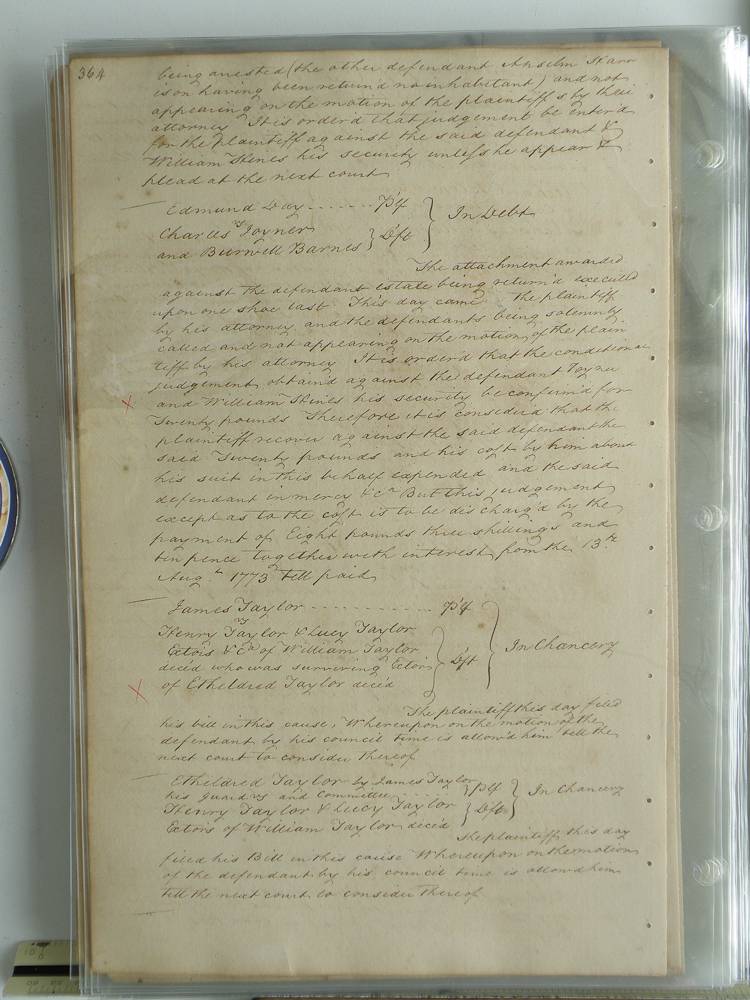 364
being arrested (the other defendant Anselm Harr
is on having been return'd no inhabitant) and not
appearing on the motion of the plaintiff s by their
attorney It is order'd that judgement be enter'd
for the plaintiff against the said defendant &
William Skines his security unless he appear &
plead at the next court
Edmund Day ....... Pl'f
vs
Charles Joyner
and Burwell Barnes } Df't } In Debt
The attachment awarded
against the defendant estate being return'd executed
upon one shoe last This day came the plaintiff
by his attorney and the defendants being solemnly
called and not appearing on the motion of the plain
tiff by his attorney It is order'd that the conditional
judgement obtain'd against the defendant Joyner
and William Skines his security be confirm'd for
Twenty pounds Therefore it is consider'd that the
plaintiff recover against the said defendant the
said Twenty pounds and his cost by him about
his suit in this behalf expended and the said
defendant in mercy &c.a But this judgement
except as to the cost is to be discharg'd by the
payment of Eight pounds three shillings and
tin pence together with interest from the 13.th
Aug.t 1773 till paid
James Taylor ............ Pl'f
vs
Henry Taylor & Lucy Taylor
Ectors &C.a of William Taylor
dec'd who was surviving Ector
of Etheldred Taylor dec'd } Df't } In Chancery
The plaintiff this day filed
his bill in this cause, Whereupon on the motion of the
defendant by his council time is allow'd him till the
next court to consider thereof
Etheldred Taylor by James Taylor
his guard and Committee ..... } Pl'f
vs
Henry Taylor & Lucy Taylor } Df't } In Chancery
Ectors of William Taylor dec'd
The plaintiff this day
filed his Bill in this cause Whereupon on the motion
of the defendant by his council time is allow'd him
till the next court to consider thereof